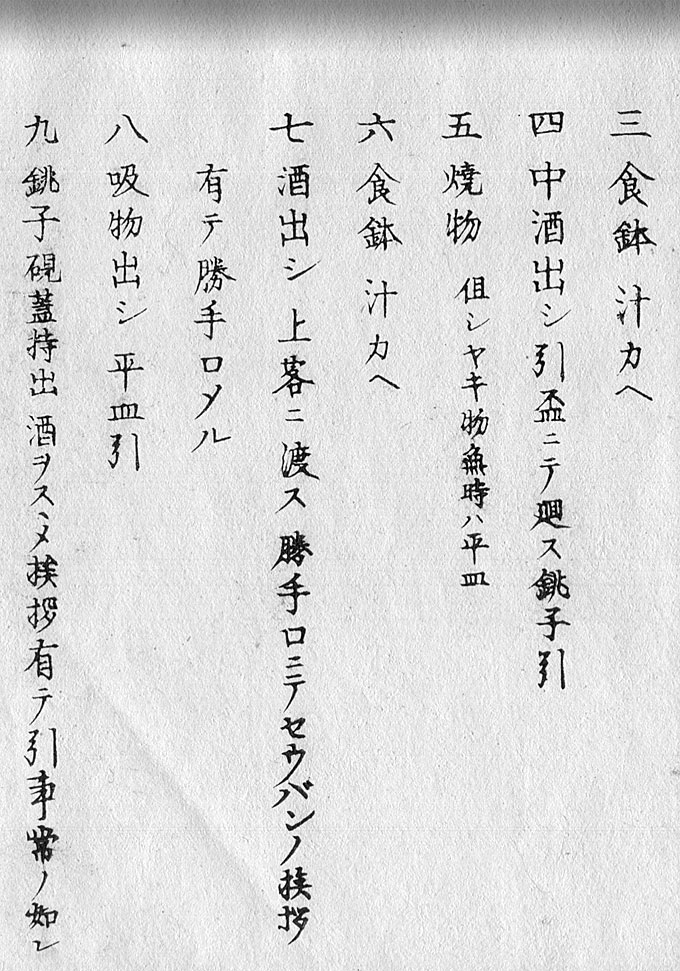 三 食鉢 汁カヘ
四 中酒出シ引盃ニテ廻ス銚子引
五 焼物 但シヤキ物無時ハ平皿
六 食鉢 汁カヘ
七 酒出シ 上客ニ渡ス勝手口ニテセウバンノ挨拶
有テ勝手口〆ル
八 吸物出シ 平皿引
九 銚子硯蓋持出酒ヲスヽメ挨拶有テ引事常ノ如シ